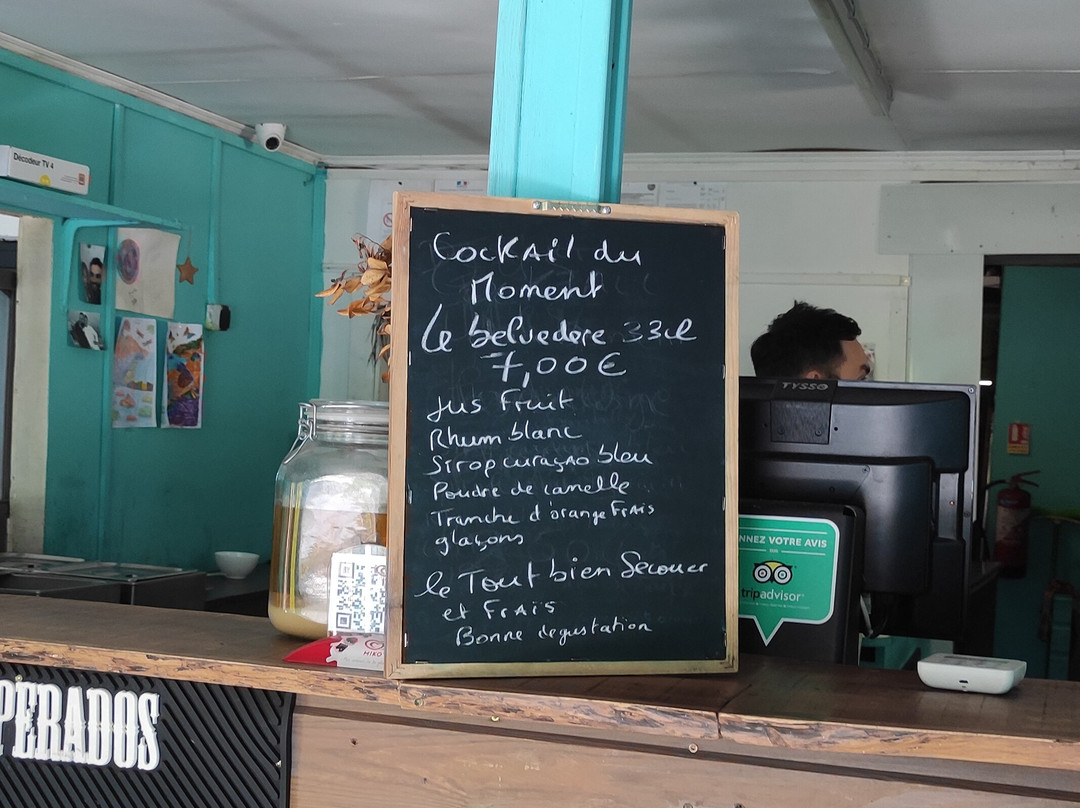 Décodeur TV 4
CocKAil du
Moment
Le belvedere 33cl
7,00€
Jus Fruit
Rhum blanc
Sirop curaçao bleu
Poudre de canelle
Tranche d'orange Frais
glaçons
le Tout bien Secouer
et Frais
Bonne degustation
TYSSO
NNEZ VOTRE AVIS
SUR
tripadvisor
MIKO
PERADOS